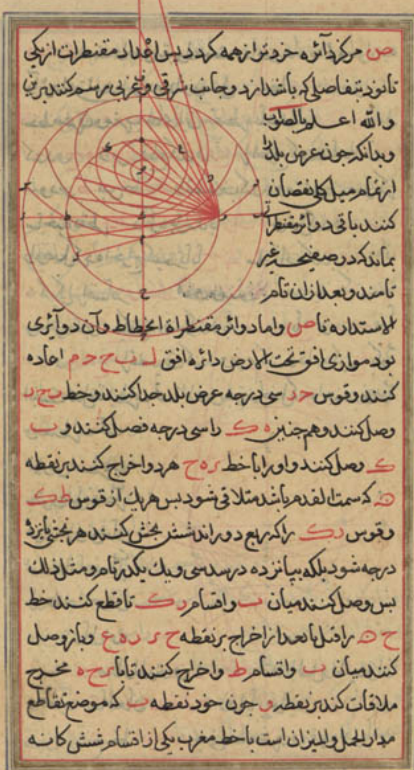 ص مرکز دآئره خرد تر از همه کردد بس اعداد مقنطرات از یکی
تا نود بتفاصلی که باشد ارد و جانب شرقی و غربی برسم کنند برین
والله اعلم بالصواب
وبدانکه جون عرض بلد
از تمام میل کلی نقصان
کنند باقی دوائر مقنطرا
بماند که در صفیحه غیر
تامند وبعد ازان تام
الاستداره تا ص واما دوائر مقنطراة انحطاط وآن دوآئری
بود موازی افق تحت الارض دائره افق ا ب ح د م اعاده
کنند وقوس ح د سی درجه عرض بلد جدا کنند وخط ب د
وصل کنند وهم جنین ه ک را سی درجه فصل کنند و ب
ک وصل کنند و او را با خط ح هر دو اخراج کنند بر نقطه
ه که سمت القدم باشد متلاقی شود بس هر یک از قوس ط ک
وقوس ر ک را که ربع دوراند شش بخش کنند هر بخشی بانزده
درجه شود بلکه بیانزده در سدسی ویک یکدر تام ومثل ذلک
بس وصل کنند میان ب واقسام ر ک تا قطع کنند خط
ح ه را قبل یا بعد از اخراج بر نقطه ح ر ه ع وباز وصل
کنند میان ب واقسام ط واخراج کنند تا با ح ه مخرج
ملاقات کند بر نقطه و جون خود نقطه ب که موضع تقاطع
مدار الحمل والمیزان است با خط مغرب یکی از اقسام شش کانه